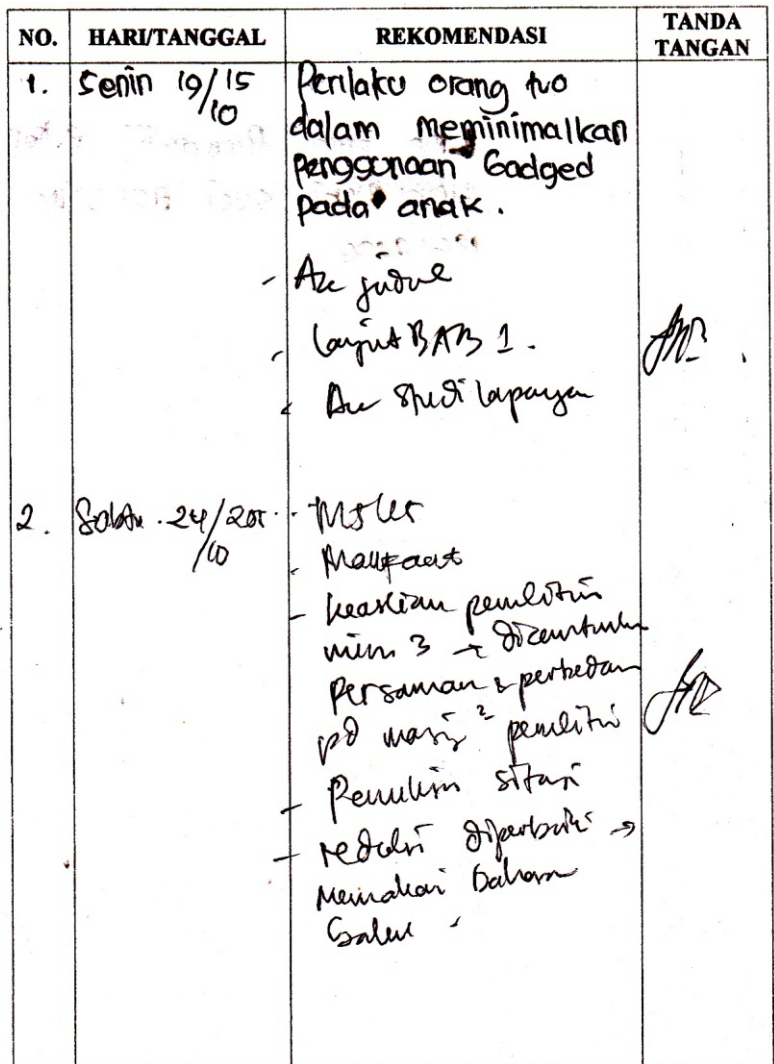 NO. HARI/TANGGAL REKOMENDASI TANDA TANGAN
1. Senin 19/15
/10
Perilaku orang tua
dalam meminimalkan
Penggunaan Gadged
pada anak.
- Acc judul
- lanjut BAB 1.
- Acc studi lapangan
2. Sabtu. 24/2015
/10
- MSKS
- Manfaat
- keaslian penelitian
min 3 → dicantumkan
Persamaan & perbedaan
pd masing² penelitian
- Penulisan sitasi
- redaksi diperbaiki →
Memakai bahasa
baku.